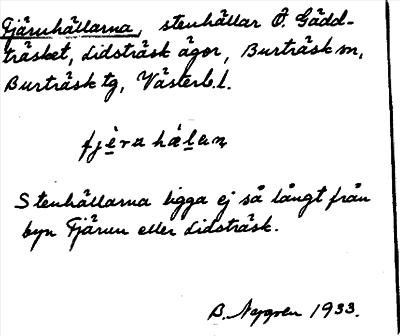 Fjärunhällarna, stenhällar Ö. Gädd-
träsket, Lidsträsk ägor, Burträsk sn,
Burträsk tg, Västerb. l.
fjèra hælan
Stenhällarna ligga ej så långt från
byn Fjärun eller Lidsträsk.
B. Nygren 1933.